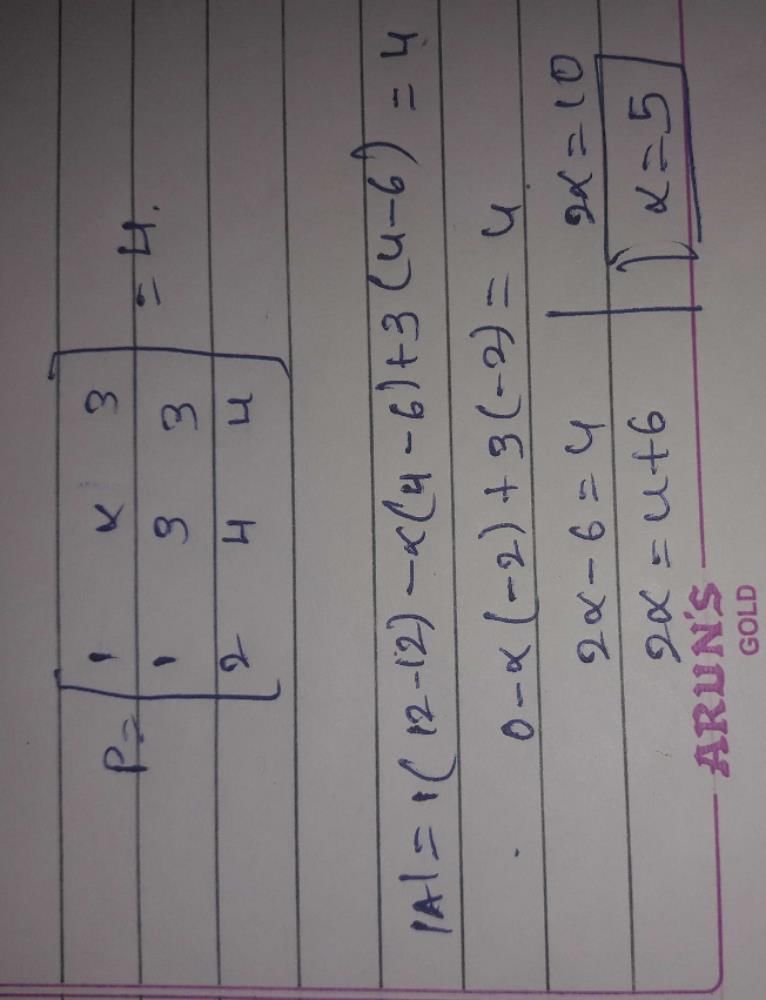 P= [ 1 α 3
1 3 3 = 4.
2 4 4 ]
|A| = 1(12-12) - α(4-6) + 3(4-6) = 4
0 - α(-2) + 3(-2) = 4
2α - 6 = 4
2α = 4+6
2α = 10
α = 5
ARUN'S
GOLD